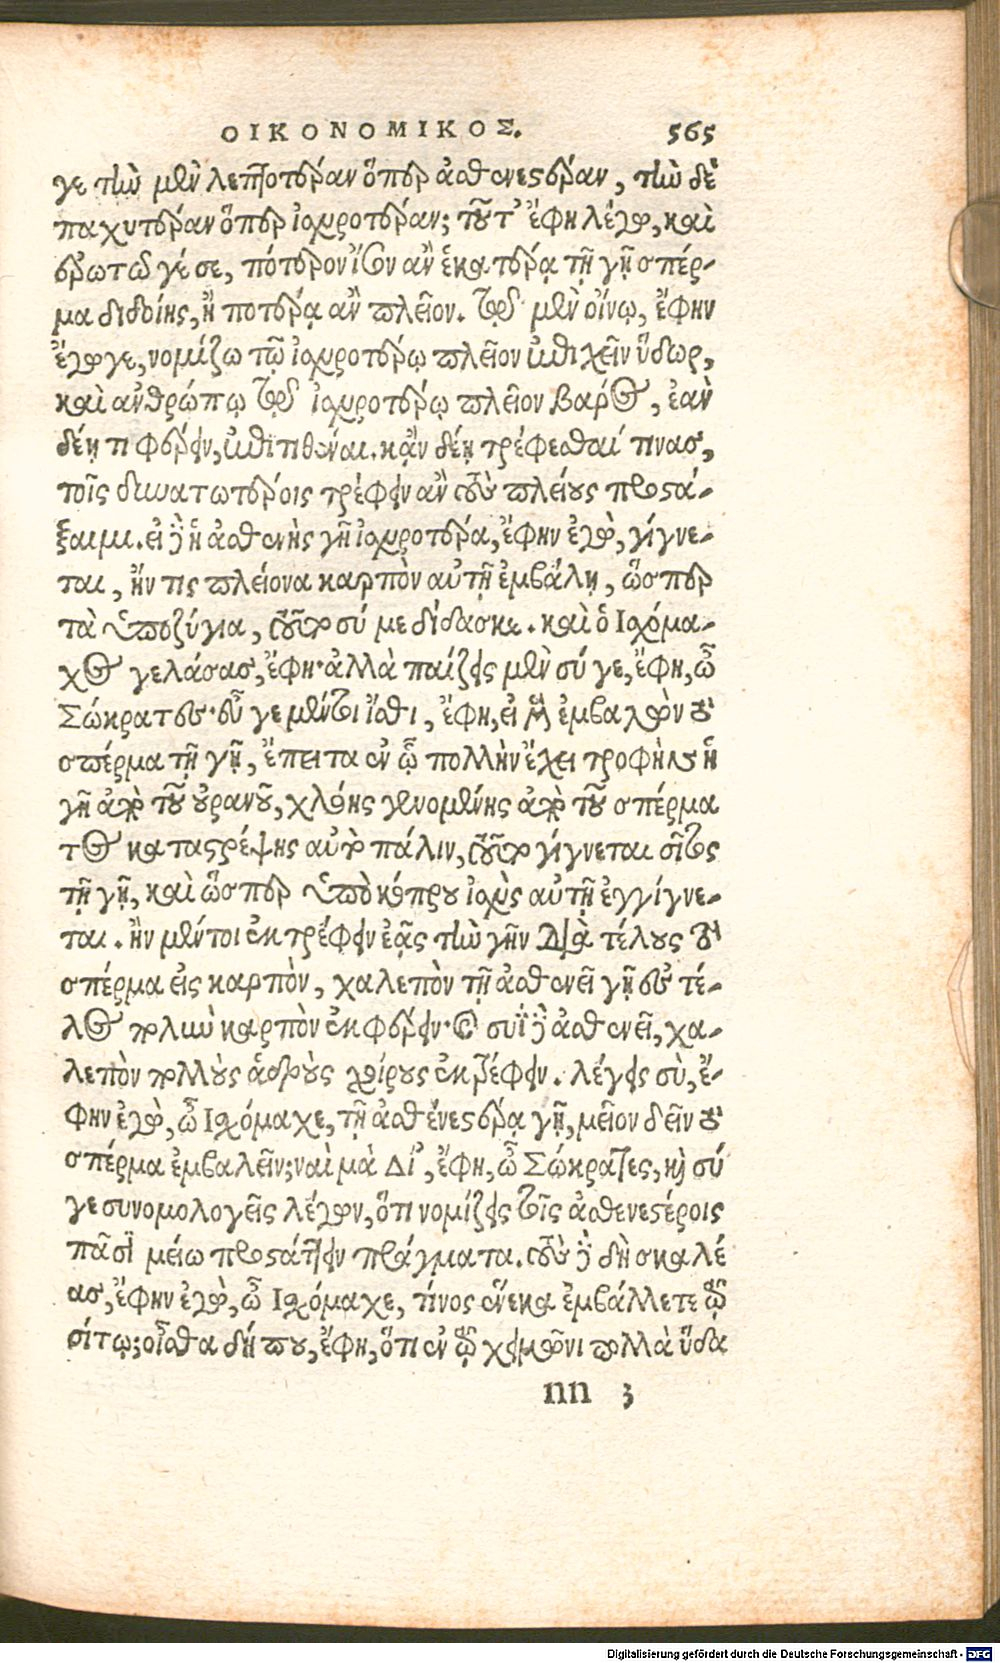 ΟΙΚΟΝΟΜΙΚΟΣ. 565
γε τὴν μὲν λεπτοτέραν ὅπερ ἀσθενεστέραν, τὴν δὲ
παχυτέραν ὅπερ ἰσχυροτέραν; τοῦτ᾽ ἔφη λέγω, καὶ
ἐρωτῶ γέ σε, πότερον ἴσον ἂν ἑκατέρᾳ τῇ γῇ σπέρ-
μα διδοίης, ἢ ποτέρᾳ ἂν πλεῖον. τῷ μὲν οἴνῳ, ἔφην
ἔγωγε, νομίζω τῷ ἰσχυροτέρῳ πλεῖον ἐπιχεῖν ὕδωρ,
καὶ ἀνθρώπῳ τῷ ἰσχυροτέρῳ πλεῖον βάρος, ἐὰν
δέῃ τι φέρειν, ἐπιτιθέναι. κἂν δέῃ τρέφεσθαί τινας,
τοῖς δυνατωτέροις τρέφειν ἂν τοὺς πλείους προστά-
ξαιμι. εἰ δὲ ἡ ἀσθενὴς γῆ ἰσχυροτέρα, ἔφην ἐγὼ, γίγνε-
ται, ἤν τις πλείονα καρπὸν αὐτῇ ἐμβάλῃ, ὥσπερ
τὰ ὑποζύγια, τοῦτο σύ με δίδασκε. καὶ ὁ Ισχόμα-
χος γελάσας, ἔφη· ἀλλὰ παίζεις μὲν σύ γε, ἔφη, ὦ
Σώκρατες· εὖ γε μέντοι ἴσθι, ἔφη, εἰ μὲν ἐμβαλὼν τὸ
σπέρμα τῇ γῇ, ἔπειτα ἐν ᾧ πολλὴν ἔχει τροφὴν ἡ
γῆ ἀπὸ τοῦ οὐρανοῦ, χλόης γενομένης ἀπὸ τοῦ σπέρμα
τος καταστρέψῃς αὐτὸ πάλιν, τοῦτο γίγνεται σῖτος
τῇ γῇ, καὶ ὥσπερ ὑπὸ κόπρου ἰσχὺς αὐτῇ ἐγγίγνε-
ται. ἢν μέντοι ἐκτρέφειν ἐᾷς τὴν γῆν διὰ τέλους τὸ
σπέρμα εἰς καρπὸν, χαλεπὸν τῇ ἀσθενεῖ γῇ ἐς τέ-
λος πολὺν καρπὸν ἐκφέρειν· καὶ συῒ δὲ ἀσθενεῖ, χα-
λεπὸν πολλοὺς ἁδροὺς χοίρους ἐκτρέφειν. λέγεις σὺ, ἔ-
φην ἐγὼ, ὦ Ισχόμαχε, τῇ ἀσθενεστέρᾳ γῇ, μεῖον δεῖν τὸ
σπέρμα ἐμβαλεῖν; ναὶ μὰ Δί᾽, ἔφη, ὦ Σώκρατες, καὶ σύ
γε συνομολογεῖς λέγων, ὅτι νομίζεις τοῖς ἀσθενεστέροις
πᾶσι μείω προστάττειν πράγματα. τοὺς δὲ δὴ σκαλέ
ας, ἔφην ἐγὼ, ὦ Ισχόμαχε, τίνος ἕνεκα ἐμβάλλετε τῷ
σίτῳ; οἶσθα δή που, ἔφη, ὅτι ἐν τῷ χειμῶνι πολλὰ ὕδα
nn 3
Digitalisierung gefördert durch die Deutsche Forschungsgemeinschaft - DFG